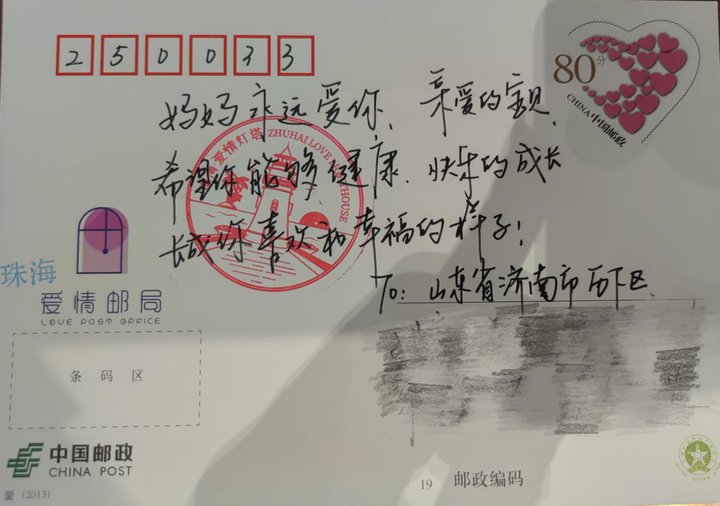 250033
80分
CHINA 中国邮政
妈妈永远爱你、亲爱的宝贝、
希望你能够健康、快乐的成长
长成你喜欢和幸福的样子!
TO: 山东省济南市历下区
爱情灯塔 ZHUHAI LOVE
珠海
爱情邮局
LOVE POST OFFICE
条码区
中国邮政
CHINA POST
爱 (2013)
19 邮政编码